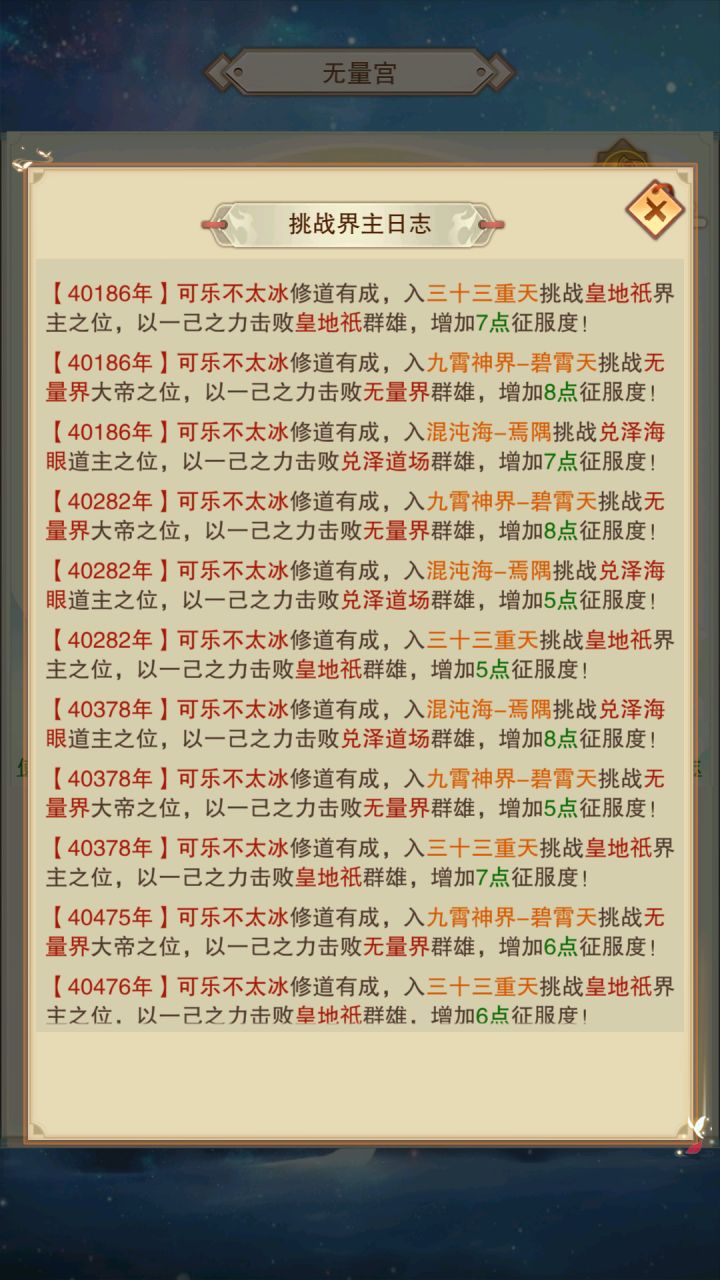 无量宫
挑战界主日志
【40186年】可乐不太冰修道有成，入三十三重天挑战皇地祇界
主之位，以一己之力击败皇地祇群雄，增加7点征服度！
【40186年】可乐不太冰修道有成，入九霄神界-碧霄天挑战无
量界大帝之位，以一己之力击败无量界群雄，增加8点征服度！
【40186年】可乐不太冰修道有成，入混沌海-焉隅挑战兑泽海
眼道主之位，以一己之力击败兑泽道场群雄，增加7点征服度！
【40282年】可乐不太冰修道有成，入九霄神界-碧霄天挑战无
量界大帝之位，以一己之力击败无量界群雄，增加8点征服度！
【40282年】可乐不太冰修道有成，入混沌海-焉隅挑战兑泽海
眼道主之位，以一己之力击败兑泽道场群雄，增加5点征服度！
【40282年】可乐不太冰修道有成，入三十三重天挑战皇地祇界
主之位，以一己之力击败皇地祇群雄，增加5点征服度！
【40378年】可乐不太冰修道有成，入混沌海-焉隅挑战兑泽海
眼道主之位，以一己之力击败兑泽道场群雄，增加8点征服度！
【40378年】可乐不太冰修道有成，入九霄神界-碧霄天挑战无
量界大帝之位，以一己之力击败无量界群雄，增加5点征服度！
【40378年】可乐不太冰修道有成，入三十三重天挑战皇地祇界
主之位，以一己之力击败皇地祇群雄，增加7点征服度！
【40475年】可乐不太冰修道有成，入九霄神界-碧霄天挑战无
量界大帝之位，以一己之力击败无量界群雄，增加6点征服度！
【40476年】可乐不太冰修道有成，入三十三重天挑战皇地祇界
主之位，以一己之力击败皇地祇群雄，增加6点征服度！